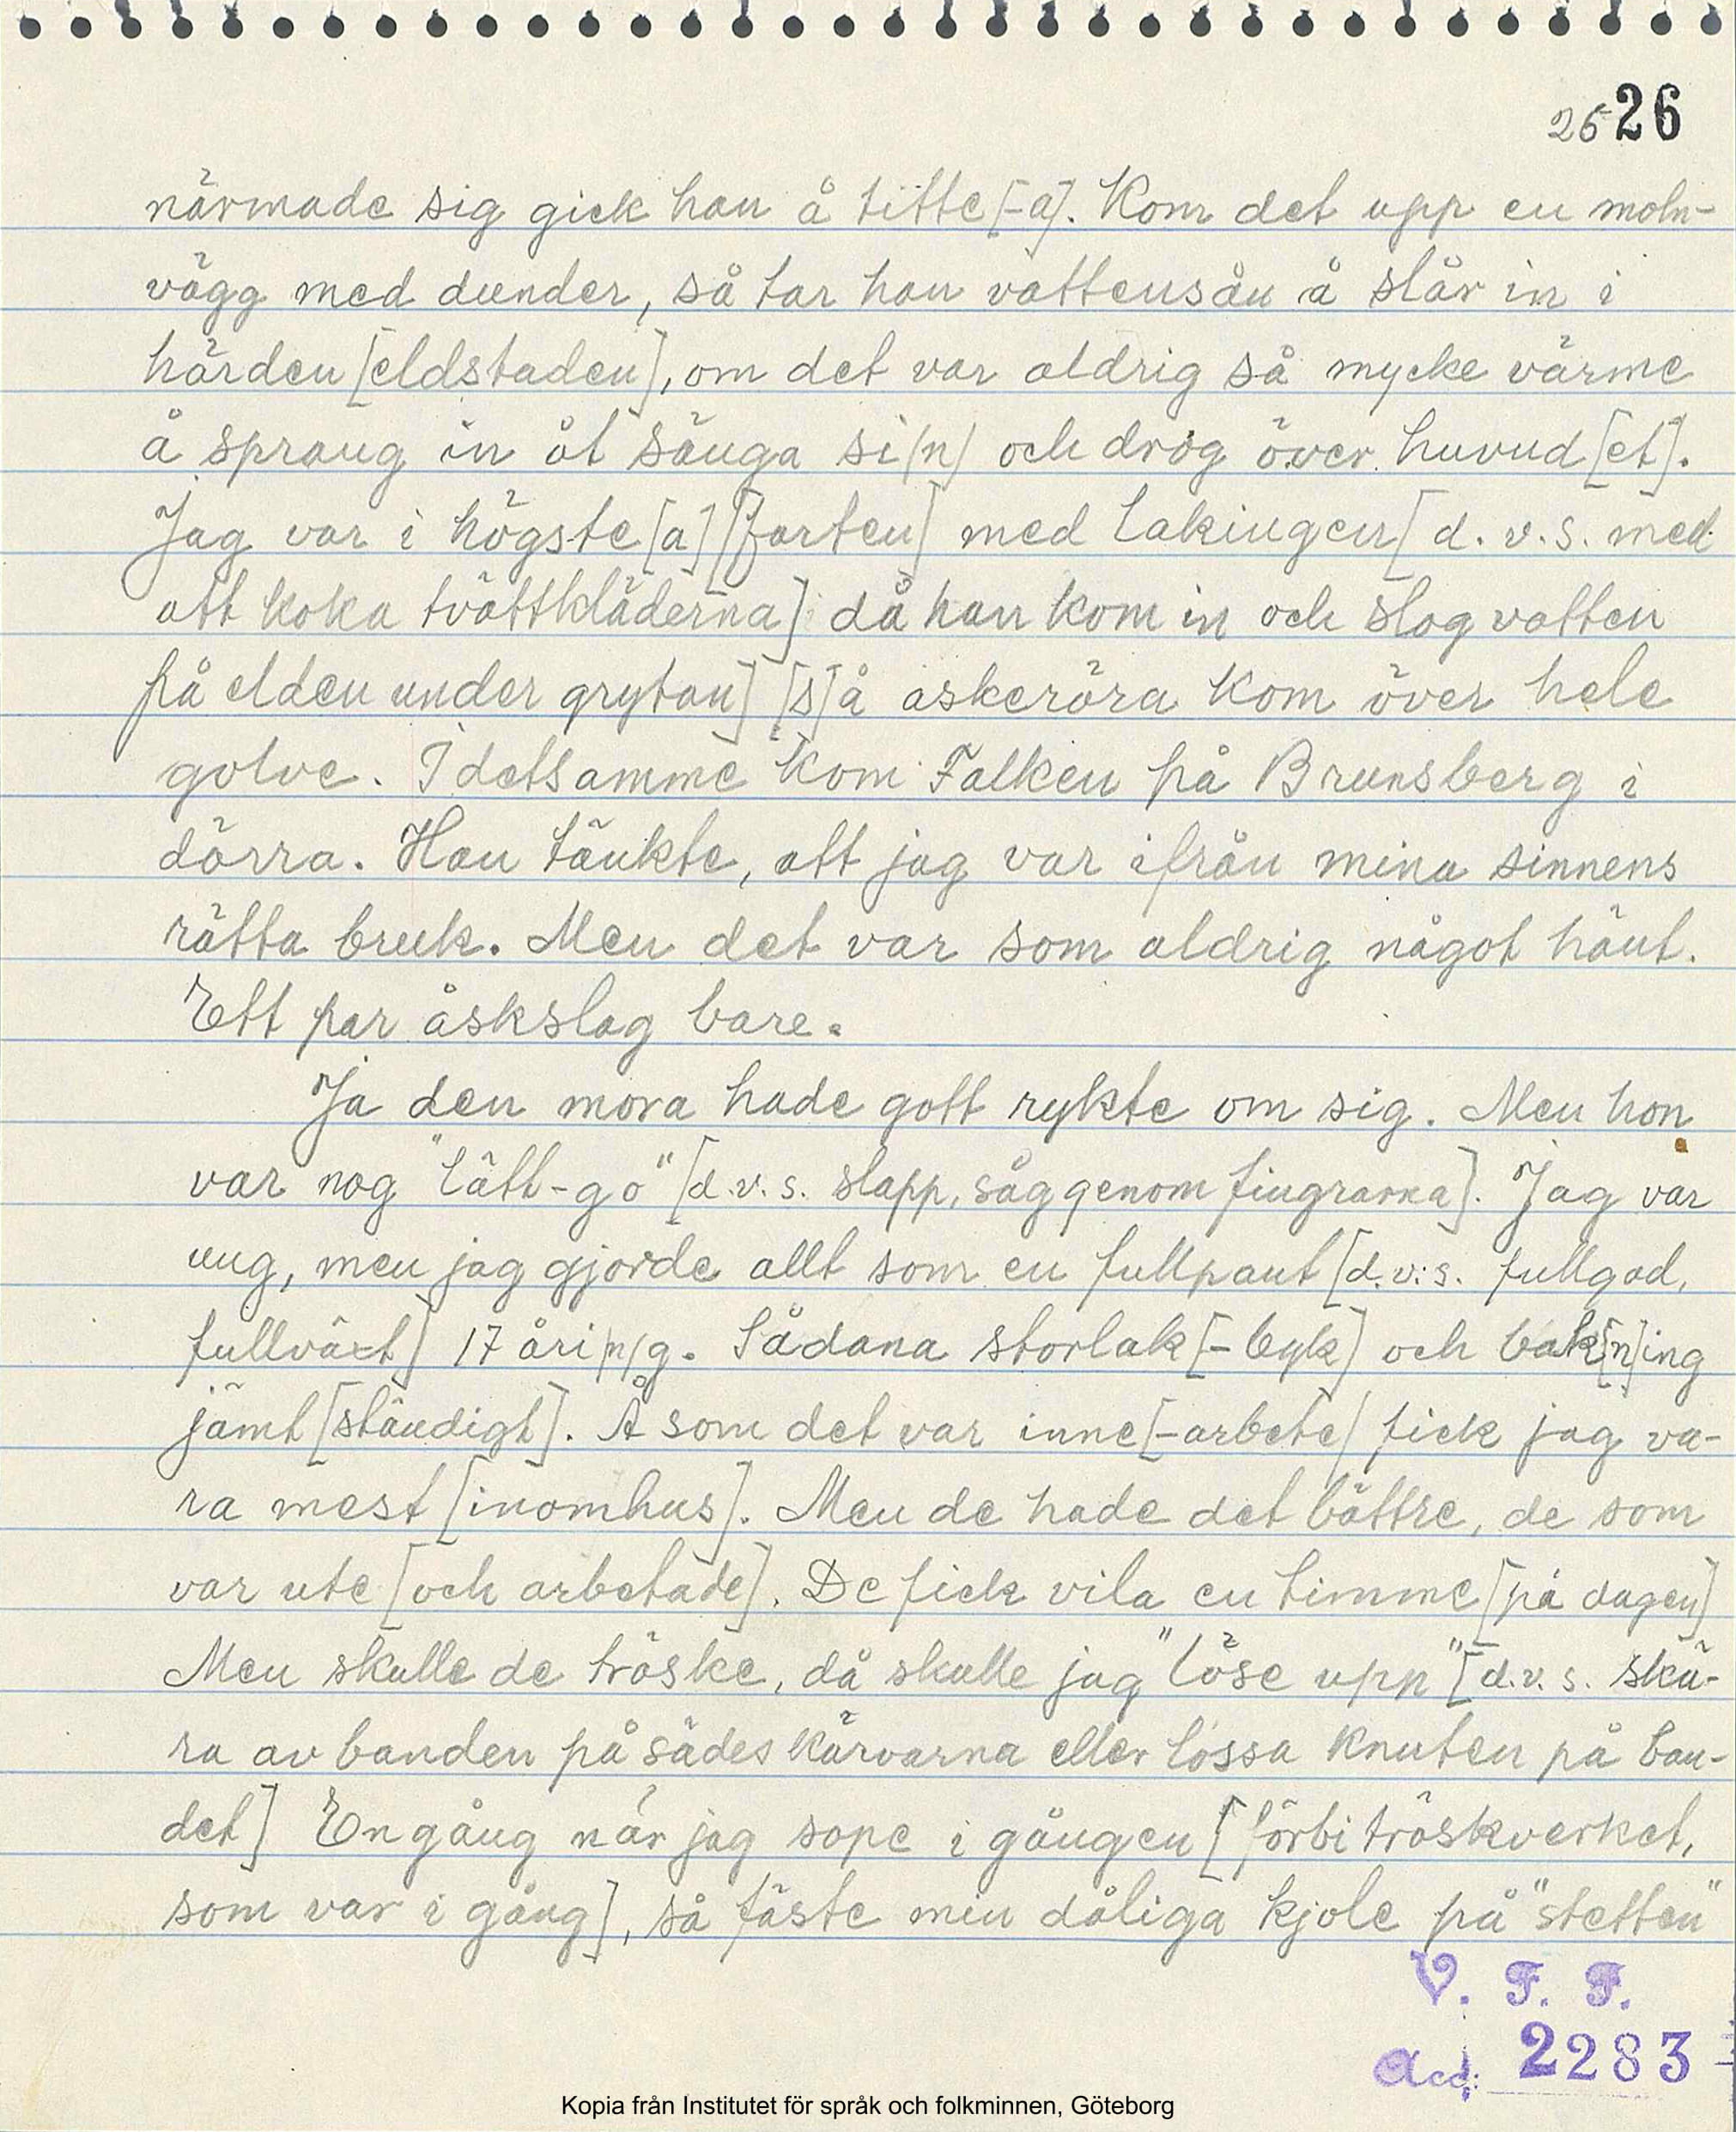 25 26
närmade sig gick han å titte[-a]. Kom det upp en moln-
vägg med dunder, så tar han vattensån å slår in i
härden [eldstaden], om det var aldrig så mycke värme
å sprang in åt sänga si/n/ och drog över huvud[et].
Jag var i högste[a] [farten] med lakingen [d.v.s. med
att koka tvättkläderna] då han kom in och slog vatten
på elden under grytan] [s]å askeröra kom över hele
golve. I detsamme kom Falken på Brunsberg i
dörra. Han tänkte, att jag var ifrån mina sinnens
rätta bruk. Men det var som aldrig något hänt.
Ett par åskslag bare.
Ja den mora hade gott rykte om sig. Men hon
var nog "lätt-go" [d.v.s. slapp, såg genom fingrarna]. Jag var
ung, men jag gjorde allt som en fullpant [d.v.s. fullgod,
fullväxt] 17 åri/n/g. Sådana storlak[-byk] och bak[n]ing
jämt [ständigt]. Å som det var inne[-arbete/ fick jag va-
ra mest [inomhus]. Men de hade det bättre, de som
var ute [och arbetade]. De fick vila en timme [på dagen]
Men skulle de tröske, då skulle jag "löse upp" [d.v.s. skä-
ra av banden på sädeskärvarna eller lossa knuten på ban-
det] En gång när jag sope i gången [förbi tröskverket,
som var i gång], så fäste min dåliga kjole på "stetten"
V. F. F.
Acc: 2283
Kopia från Institutet för språk och folkminnen, Göteborg